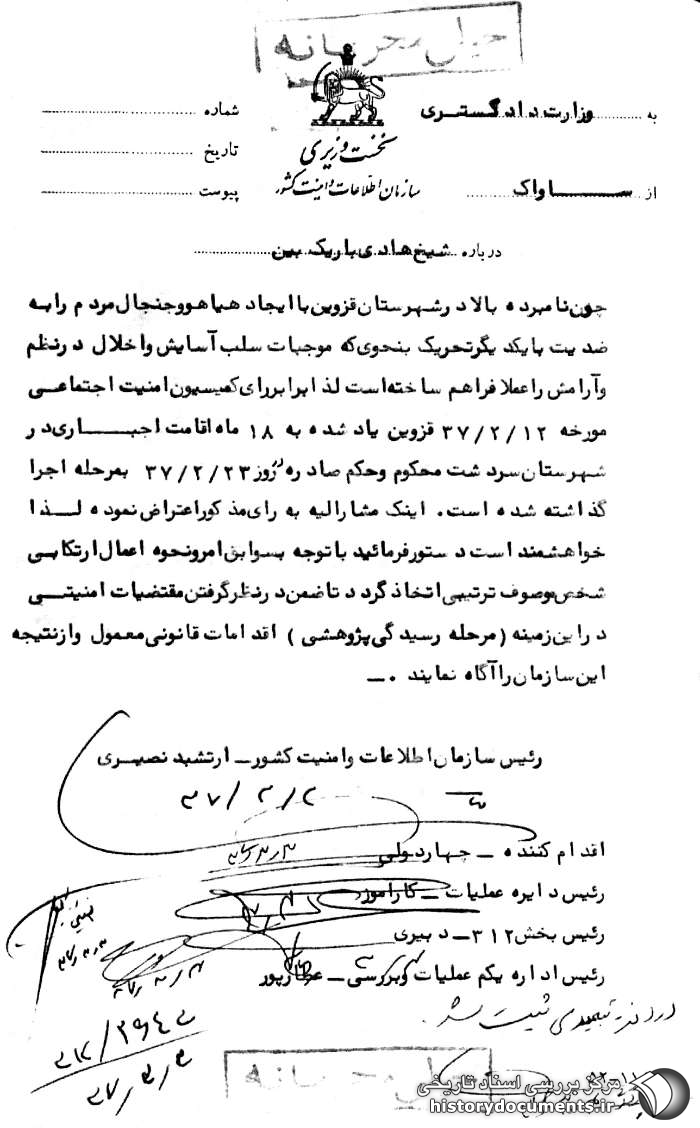 خیلی محرمانه
به وزارت دادگستری
شماره
نخست وزیری
تاریخ
سازمان اطلاعات و امنیت کشور
از ســـاواک
پیوست
درباره شیخ هادی باریک بین
چون نامبرده بالا در شهرستان قزوین با ایجاد هیاهو و جنجال مردم را به
ضدیت با یکدیگر تحریک بنحوی که موجبات سلب آسایش و اخلال در نظم
و آرامش را عملا فراهم ساخته است لذا برابر رای کمیسیون امنیت اجتماعی
مورخه ۳۷/۲/۱۲ قزوین یاد شده به ۱۸ ماه اقامت اجبـــاری در
شهرستان سردشت محکوم و حکم صادره روز ۳۷/۲/۲۳ بمرحله اجرا
گذاشته شده است. اینک مشارالیه به رای مذکور اعتراض نموده لـذا
خواهشمند است دستور فرمائید با توجه بسوابق امر و نحوه اعمال ارتکابی
شخص موصوف ترتیبی اتخاذ گردد تا ضمن در نظر گرفتن مقتضیات امنیتـی
در این زمینه (مرحله رسیدگی پژوهشی) اقدامات قانونی معمول و از نتیجه
این سازمان را آگاه نمایند ۰ــ
رئیس سازمان اطلاعات و امنیت کشور ــ ارتشبد نصیـری
اقدام کننده ــ چهاردولی
رئیس دایره عملیات ــ کارآموز
رئیس بخش ۳۱۲ ــ دبیری
رئیس اداره یکم عملیات و بررسی ــ عطارپور
در دفتر تبعیدی ثبت شد
۳۷/۳/۳
خیلی محرمانه
مرکز بررسی اسناد تاریخی
historydocuments.ir